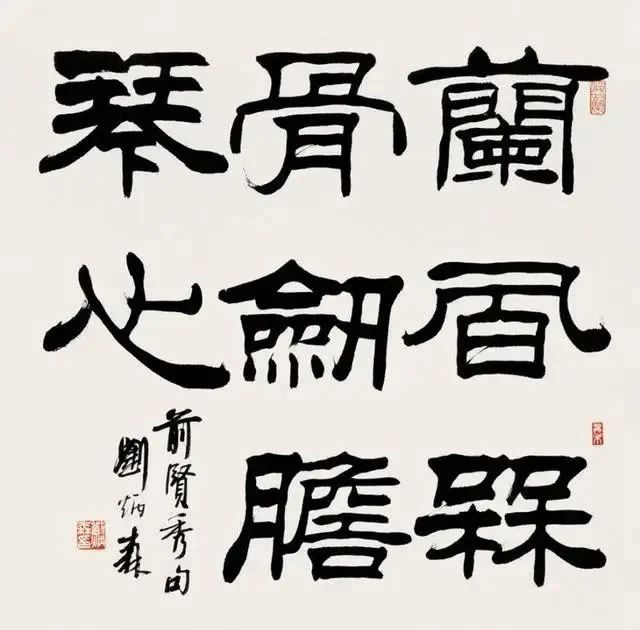 蘭風槑
骨劒膽
琴心
前賢秀句
劉炳森